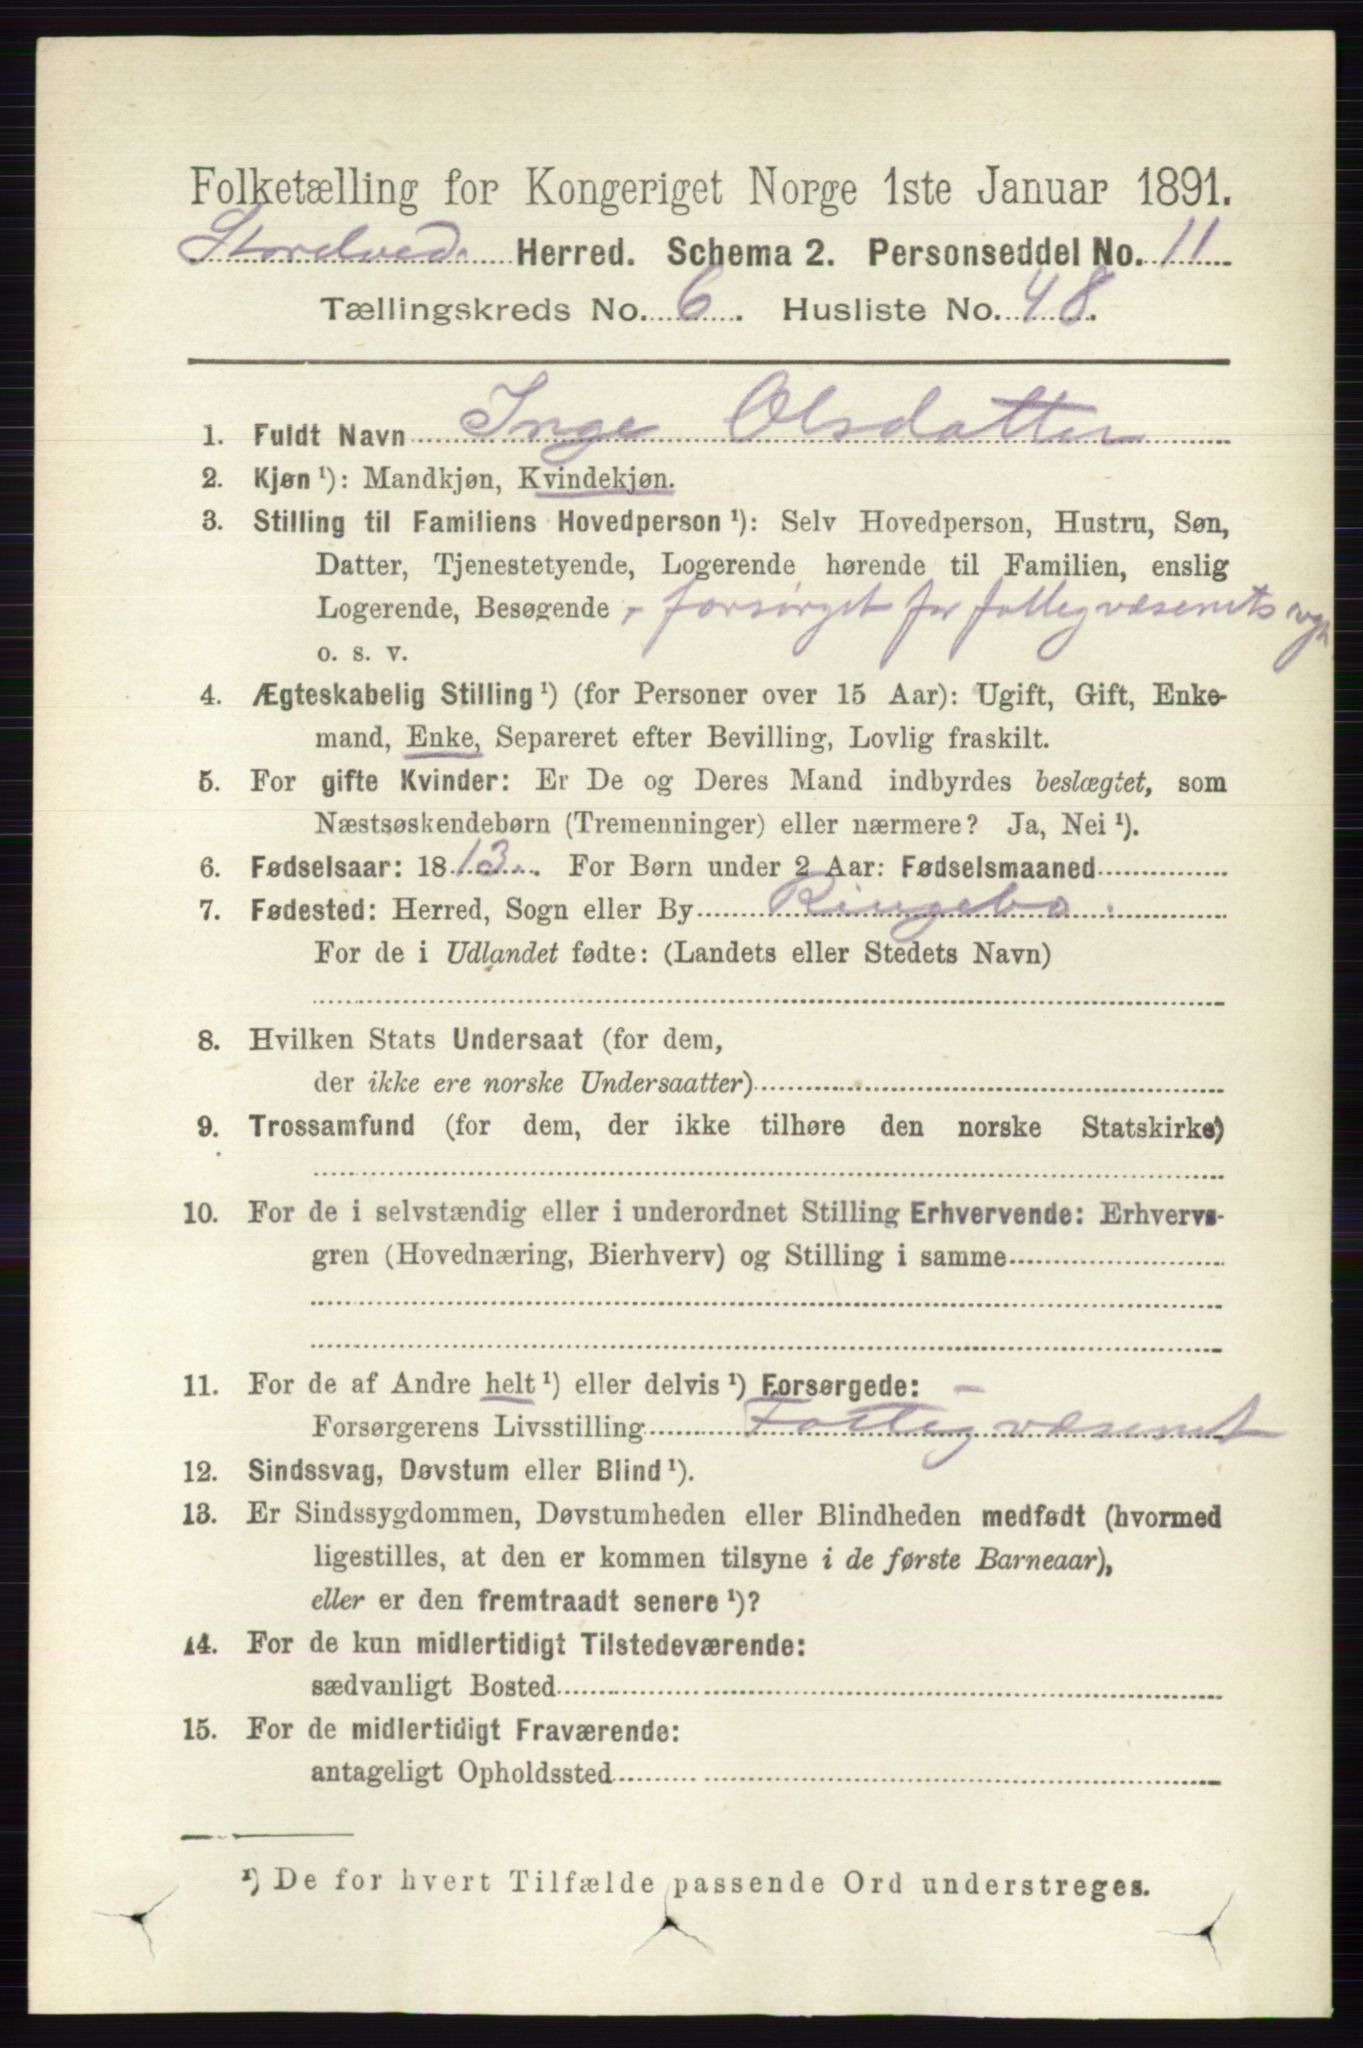 Folketælling for Kongeriget Norge 1ste Januar 1891.
Storelved. Herred. Schema 2. Personseddel No. 11
Tællingskreds No. 6. Husliste No. 48.
1. Fuldt Navn Inge Olsdatter
2. Kjøn ¹): Mandkjøn, Kvindekjøn.
3. Stilling til Familiens Hovedperson ¹): Selv Hovedperson, Hustru, Søn,
Datter, Tjenestetyende, Logerende hørende til Familien, enslig
Logerende, Besøgende , forsørget for fattigvæsenets
o. s. v.
4. Ægteskabelig Stilling ¹) (for Personer over 15 Aar): Ugift, Gift, Enke-
mand, Enke, Separeret efter Bevilling, Lovlig fraskilt.
5. For gifte Kvinder: Er De og Deres Mand indbyrdes beslægtet, som
Næstsøskendebørn (Tremenninger) eller nærmere? Ja, Nei ¹).
6. Fødselsaar: 1813. For Børn under 2 Aar: Fødselsmaaned
7. Fødested: Herred, Sogn eller By Ringebo.
For de i Udlandet fødte: (Landets eller Stedets Navn)
8. Hvilken Stats Undersaat (for dem,
der ikke ere norske Undersaatter)
9. Trossamfund (for dem, der ikke tilhøre den norske Statskirke)
10. For de i selvstændig eller i underordnet Stilling Erhvervende: Erhvervs-
gren (Hovednæring, Bierhverv) og Stilling i samme
11. For de af Andre helt ¹) eller delvis ¹) Forsørgede:
Forsørgerens Livsstilling Fattigvæsenet
12. Sindssvag, Døvstum eller Blind ¹).
13. Er Sindssygdommen, Døvstumheden eller Blindheden medfødt (hvormed
ligestilles, at den er kommen tilsyne i de første Barneaar),
eller er den fremtraadt senere ¹)?
14. For de kun midlertidigt Tilstedeværende:
sædvanligt Bosted
15. For de midlertidigt Fraværende:
antageligt Opholdssted
¹) De for hvert Tilfælde passende Ord understreges.